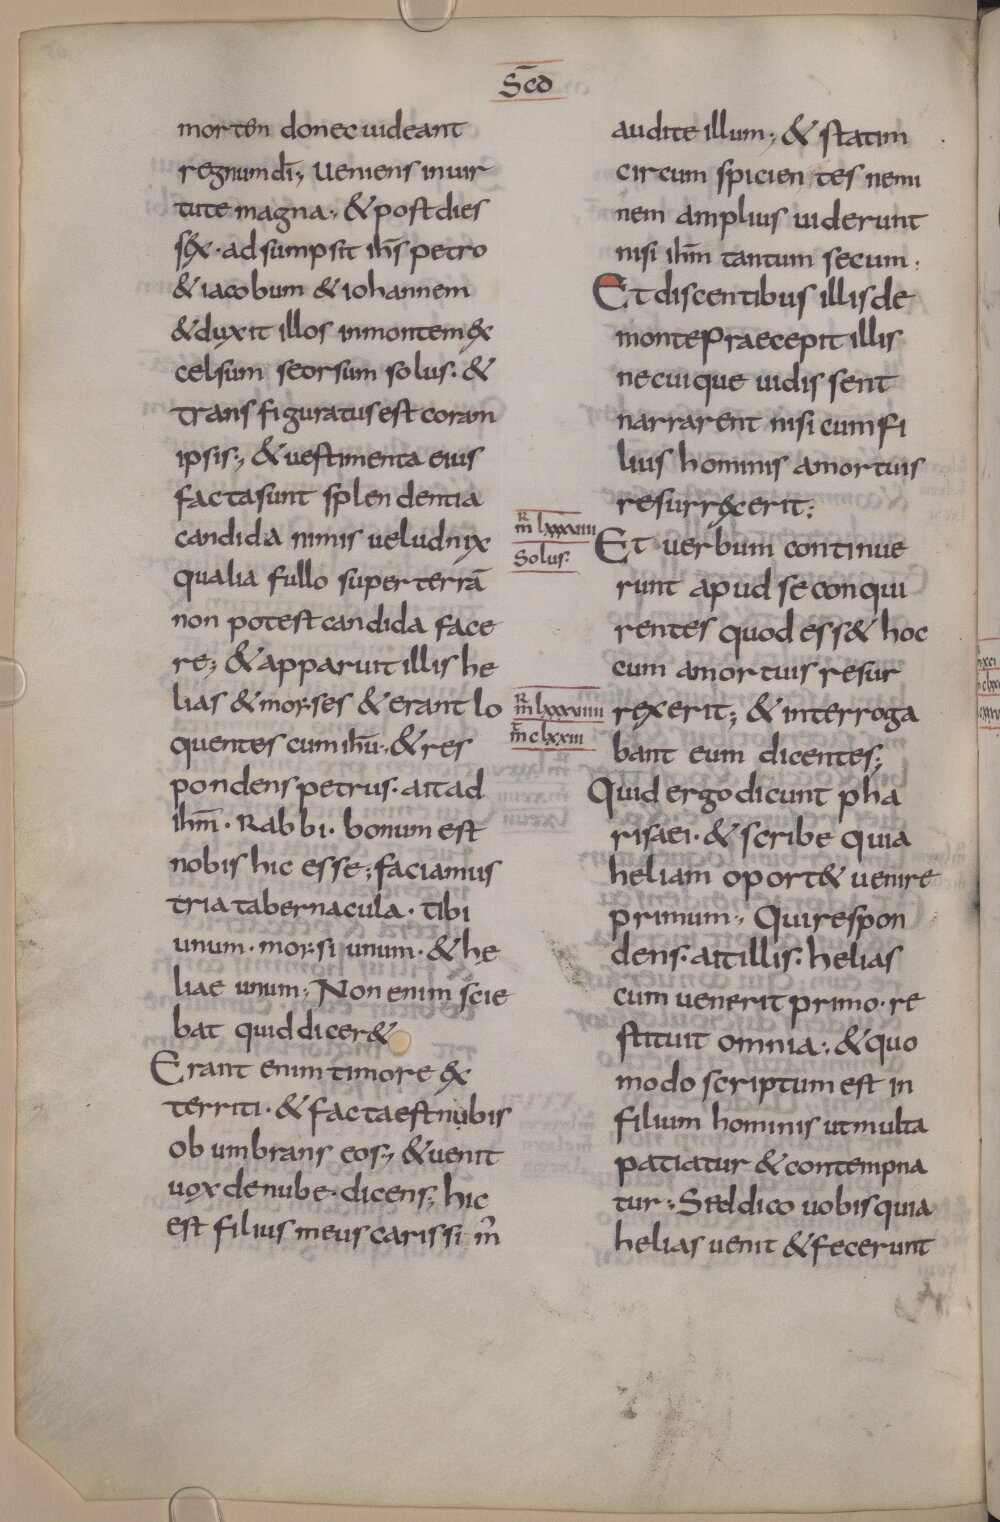 Scd̄
mortem donec uideant
regnum dī; ueniens inuir
tute magna; & post dies
s&x · adsumpsit ihs̄ petro
& iacobum & iohannem
& duxit illos inmontem &x
celsum seorsum solus · &
transfiguratus est coram
ipsis; & uestimenta eius
facta sunt splendentia
candida nimis uelud nix
qualia fullo super terrā
non potest candida face
re; & apparuit illis he
lias & moyses & erant lo
quentes cum ihū; & res
pondens petrus · ait ad
ihm̄ · Rabbi · bonum est
nobis hic esse; faciamus
tria tabernacula · tibi
unum · moysi unum · & he
liae unum; Non enim scie
bat quid dicer&
Erant enim timore &x
territi · & facta est nubis
obumbrans eos; & uenit
uox denube · dicens; hic
est filius meus carissi m̄
R
m̄ lxxxviii
Solus ·
R
m̄ lxxxviiii
m̄ clxxiii
audite illum; & statim
circumspicientes nemi
nem amplius uiderunt
nisi ihm̄ tantum secum ·
Et discentibus illis de
monte Praecepit illis
ne cuique uidissent
narrarent nisi cum fi
lius hominis amortuis
resurr&xerit;
Et uerbum continue
runt apud se conqui
rentes quod ess& hoc
cum amortuis resur
rexerit; & interroga
bant eum dicentes;
Quid ergo dicunt pha
risaei · & scribe quia
heliam oport& uenire
primum; Qui respon
dens · ait illis · helias
cum uenerit primo · re
stituit omnia; & quo
modo scriptum est in
filium hominis ut multa
patiatur & contempna
tur; Sed dico uobis quia
helias uenit & fecerunt